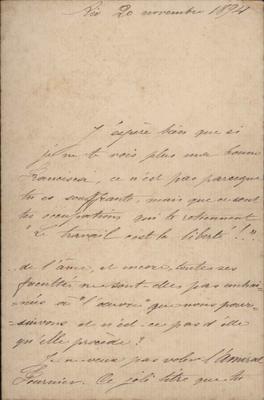 Rio 20 novembre 1894
J'espère bien que si
je ne te vois plus ma bonne
Francisca, ce n'est pas parceque
tu es souffrante, mais que ce sont
tes occupations qui te retiennent
"Le travail c'est la liberté!"
de l'âme, et encore, toutes ses
facultés ne sont-elles pas enchai-
nées à "l'œuvre" que nous pour-
suivons et n'est-ce pas d'elle
qu'elle procède?
Je ne veux pas voler l'Amiral
Fournier. Ce joli titre que tu